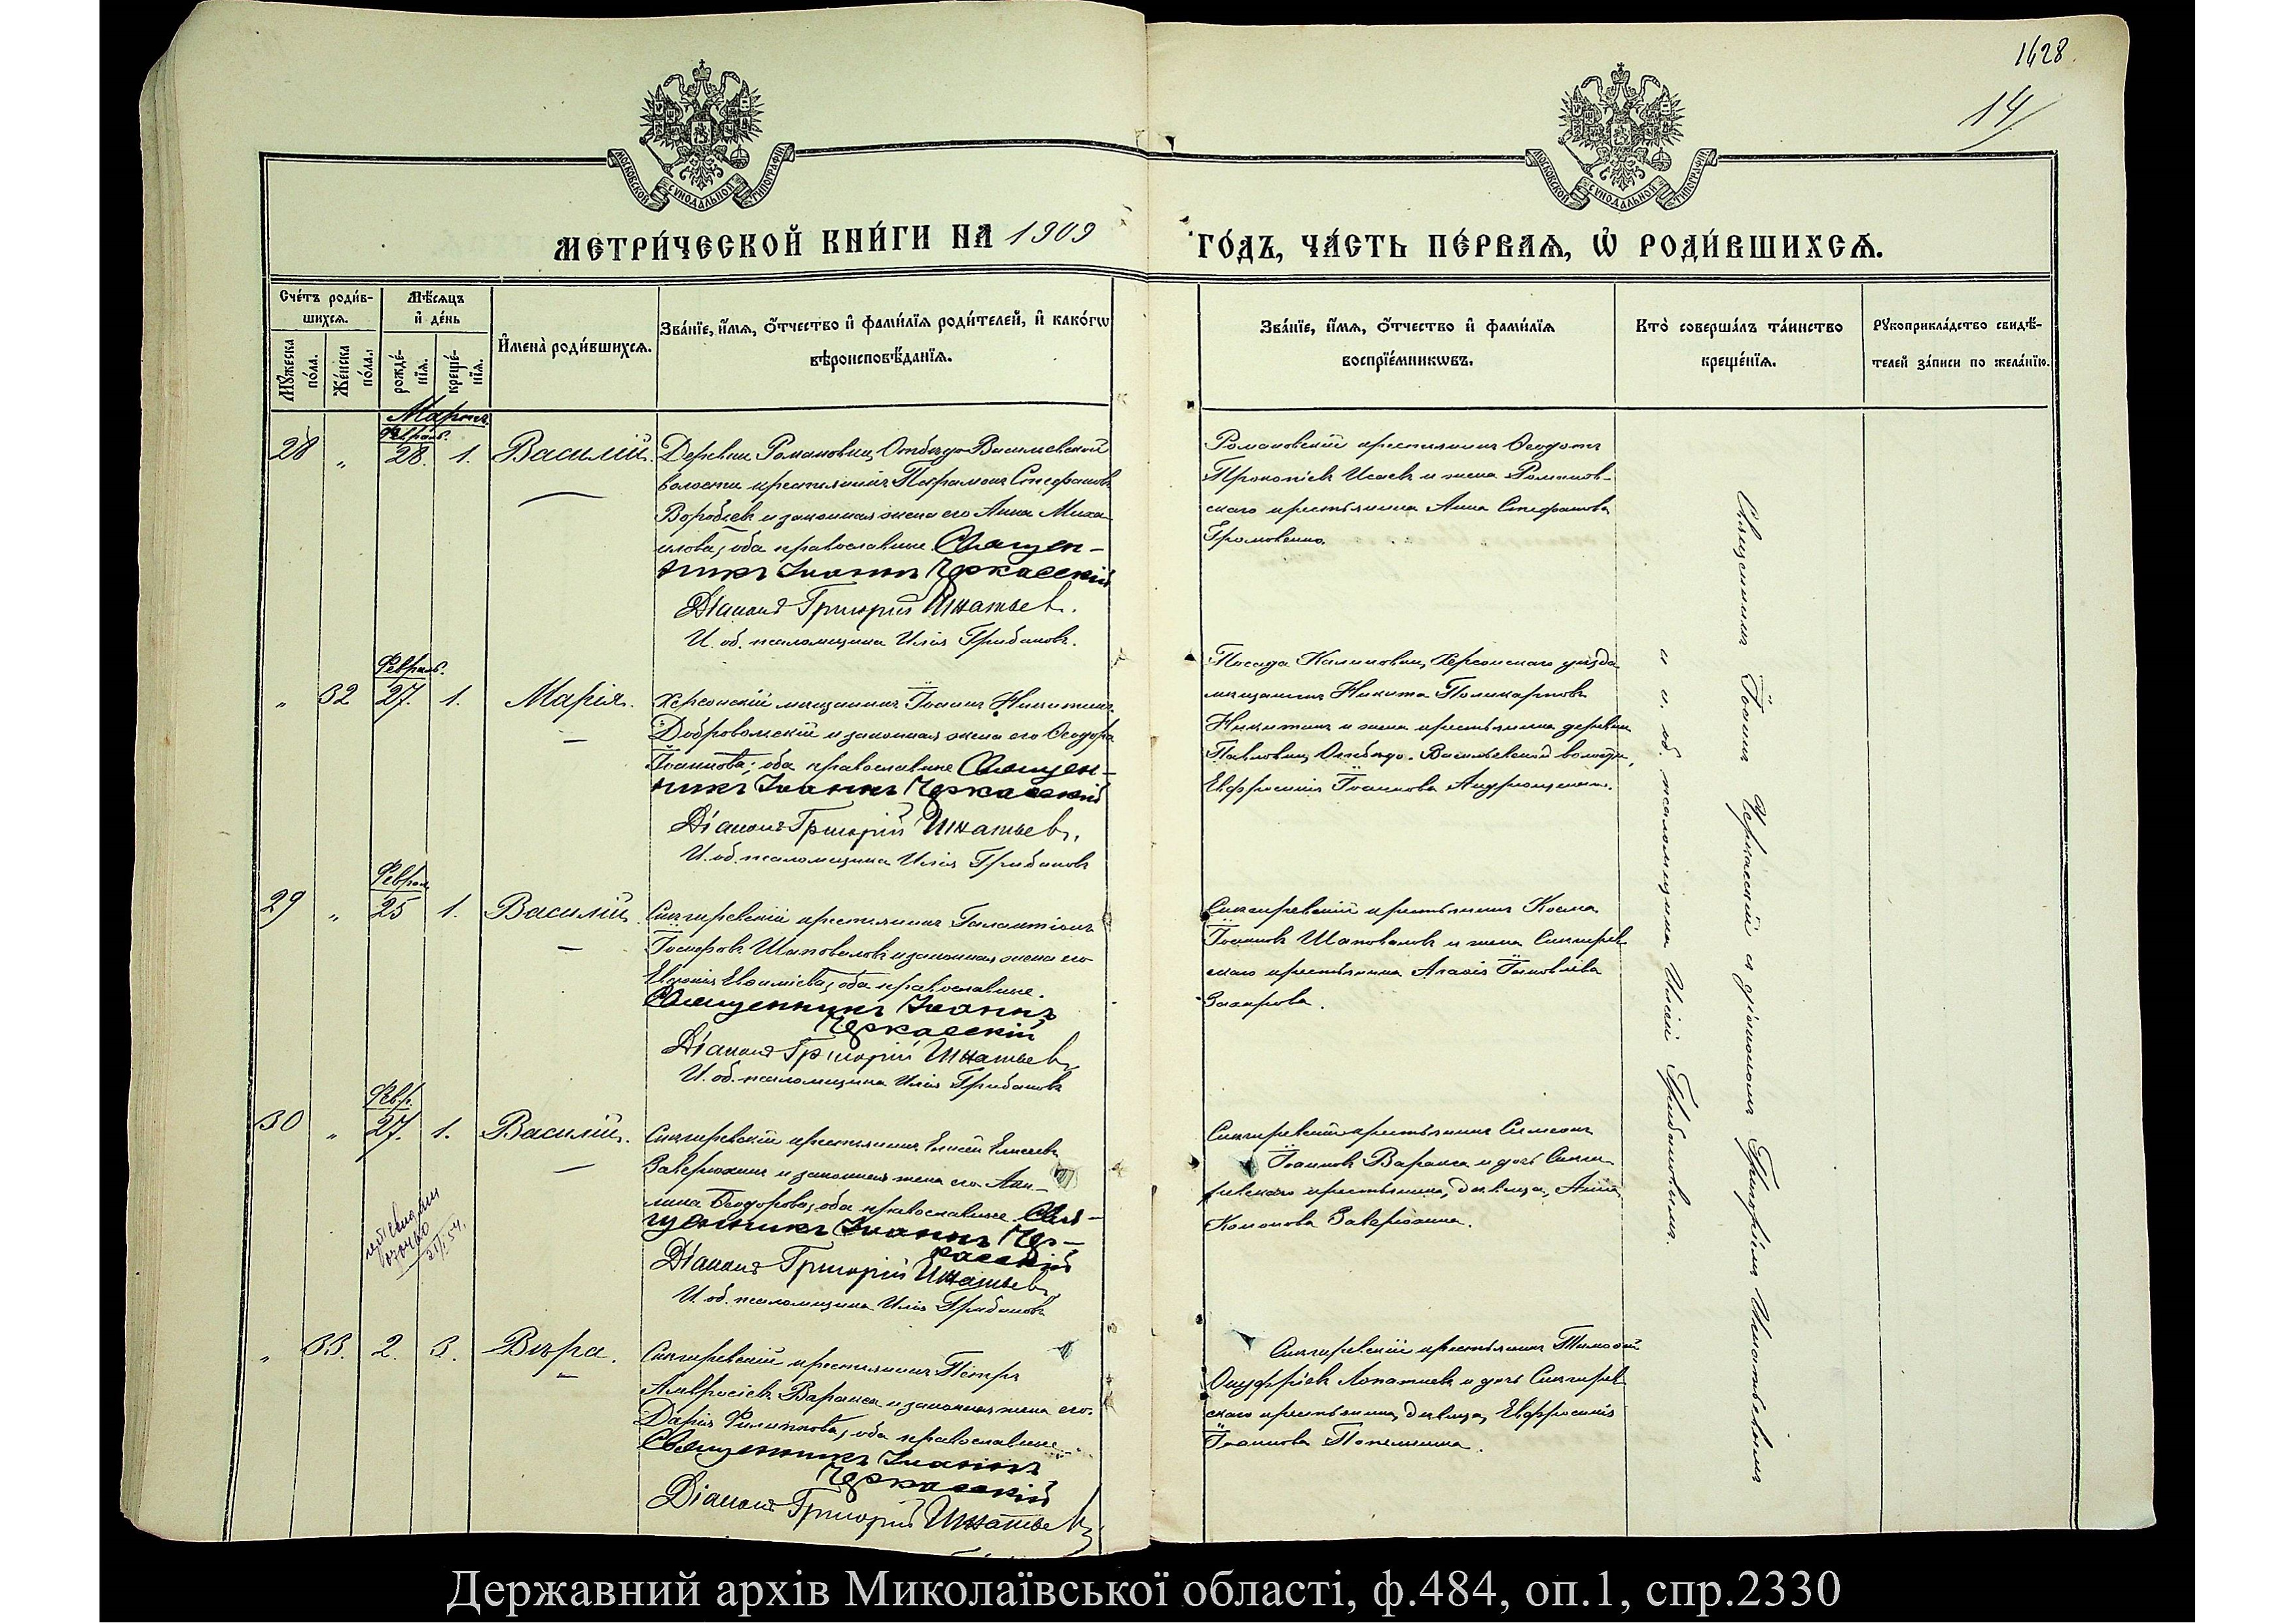 1428.
14
МОСКОВСКОЙ СѴНОДАЛЬНОЙ ТИПОГРАФІИ
МОСКОВСКОЙ СѴНОДАЛЬНОЙ ТИПОГРАФІИ
МЕТРИ́ЧЕСКОЙ КНИ́ГИ НА 1909
ГО́ДЪ, ЧА́СТЬ ПЕ́РВАѦ, Ѡ҆ РОДИ́ВШИХСѦ.
Сче́тъ роди́в-
шихсѧ.
Мѣ́сѧцъ
и҆ де́нь
Мꙋ́жеска
по́ла.
Же́нска
по́ла.
рожде́-
нїѧ.
креще́-
нїѧ.
И҆мена̀ роди́вшихсѧ.
Зва́нїе, и҆́мѧ, ѻ҆́тчество и҆ фами́лїѧ роди́телей, и҆ како́гѡ
вѣроисповѣ́данїѧ.
Зва́нїе, и҆́мѧ, ѻ҆́тчество и҆ фами́лїѧ
воспрїе́мникѡвъ.
Кто̀ соверша́лъ та́инство
креще́нїѧ.
Рꙋкоприкла́дство свидѣ́-
телей за́писи по жела́нїю.
Мартъ
Февраль.
28 " 28. 1. Василій.
Деревни Романовки, Отбѣдо-Васильевской
волости крестьянинъ Парамонъ Стефановъ
Воробьевъ и законная жена его Анна Миха-
илова, оба православные. Священ-
никъ Іоаннъ Черкасскій
Діаконъ Григорій Игнатьевъ.
И. об. псаломщика Илія Грибановъ.
Романовскій крестьянинъ Ѳеодотъ
Прокопіевъ Исаевъ и жена Романов-
скаго крестьянина Анна Стефанова
Громовенко.
Февраль.
" 32 27. 1. Марія.
Херсонскій мѣщанинъ Іоаннъ Никитинъ
Добровольскій и законная жена его Ѳеодора
Іоаннова; оба православные Священ-
никъ Іоаннъ Черкасскій
Діаконъ Григорій Игнатьевъ.
И. об. псаломщика Илія Грибановъ
Посада Калиновки, Херсонскаго уѣзда
мѣщанинъ Никита Поликарповъ
Никитинъ и жена крестьянина деревни
Павловки, Отбѣдо-Васильевской волости,
Евфросинія Іоаннова
Февраль
29 " 25 1. Василій.
Снигиревскій крестьянинъ Галактіонъ
Іосифовъ Шаповаловъ и законная жена его
Евгенія Евѳиміева, оба православные.
Священникъ Іоаннъ
Черкасскій
Діаконъ Григорій Игнатьевъ
И. об. псаломщика Илія Грибановъ
Снигиревскій крестьянинъ Косма
Іоанновъ Шаповаловъ и жена Снигирев-
скаго крестьянина Агаѳія Іаковлева
Захарова.
Февр.
30 " 27. 1. Василій.
Снигиревскій крестьянинъ Елисей Елисеевъ
Заверюхинъ и законная жена его Аки-
лина Ѳеодорова, оба православные Свя-
щенникъ Іоаннъ Чер-
касскій
Діаконъ Григорій Игнатьевъ
И. об. псаломщика Илія Грибановъ
Снигиревскій крестьянинъ Симеонъ
Іоанновъ Варакса и дочь Сниги-
ревскаго крестьянина, дѣвица, Анна
Кононова Заверюхина.
" 33. 2. 3. Вѣра.
Снигиревскій крестьянинъ Петръ
Амвросіевъ Варакса и законная жена его
Дарія Филиппова, оба православные
Священникъ Іоаннъ
Черкасскій
Діаконъ Григорій Игнатьевъ
Снигиревскій крестьянинъ Тимоѳей
Онуфріевъ Лопатиевъ и дочь Снигирев-
скаго крестьянина, дѣвица, Евфросинія
Іоаннова
Священникъ Іоаннъ Черкасскій съ діакономъ Григоріемъ Игнатьевымъ
и и. об. псаломщика Иліей Грибановымъ.
Державний архів Миколаївської області, ф.484, оп.1, спр.2330